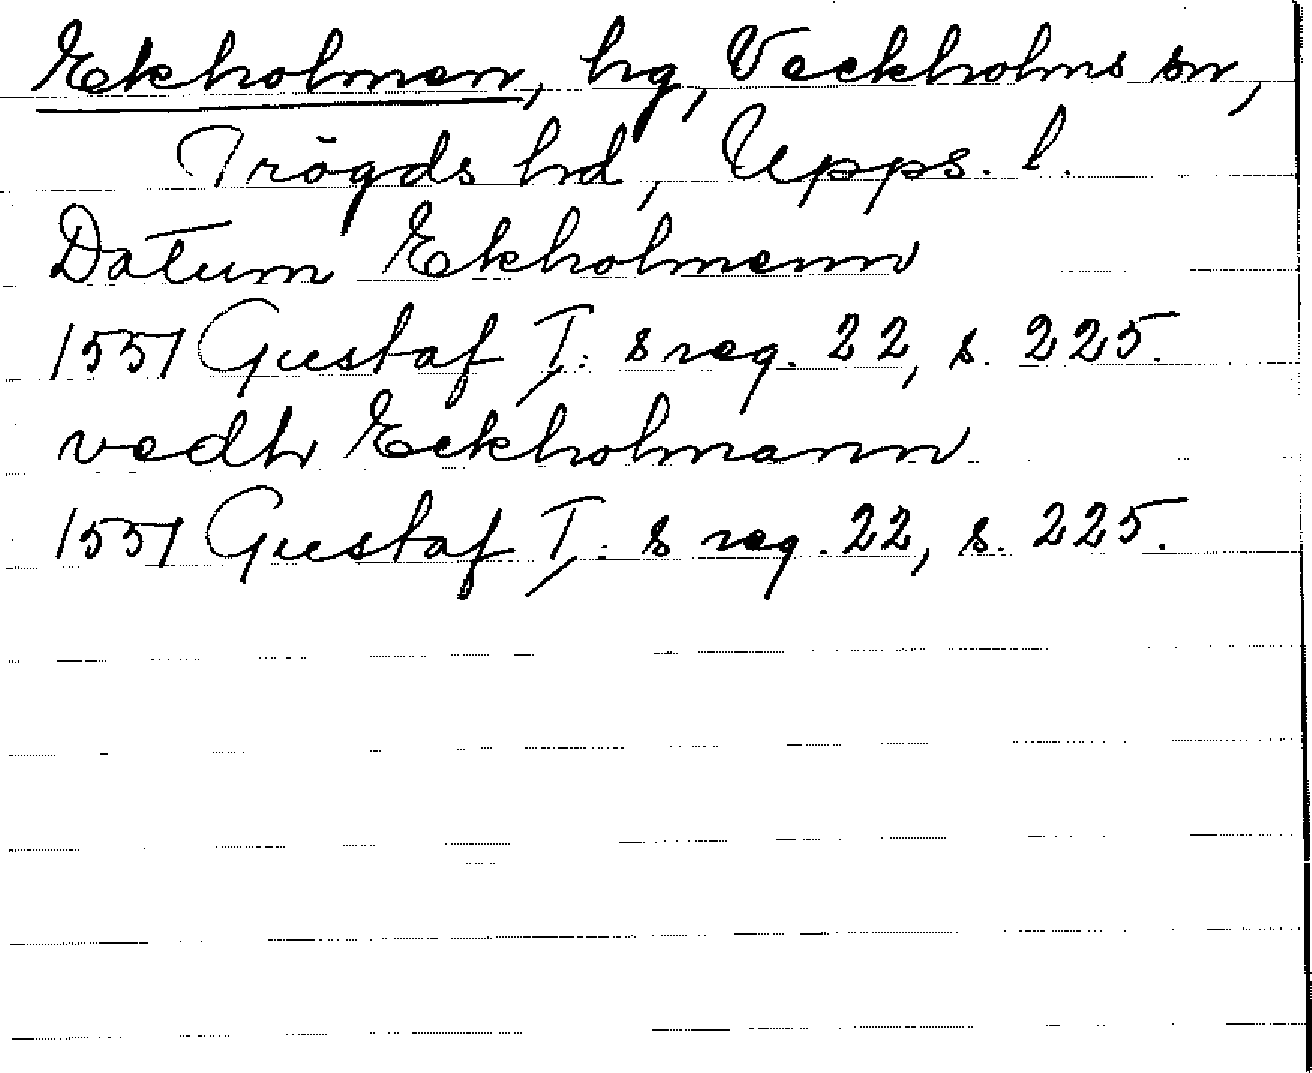 Ekholmen, hg, Veckholms sn,
Trögds hd, Upps. l.
Datum Ekholmenn
1551 Gustaf I: s reg. 22, s. 225.
vedh Eckholmann
1551 Gustaf I: s reg. 22, s. 225.